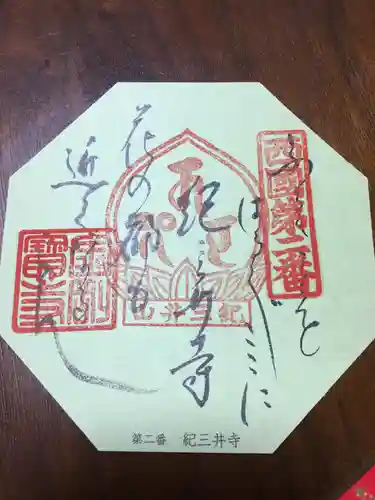 ふるさとを
はるばるここに
紀三井寺
花の都も
近くなるらん
西國第二番
紀三井山
第二番 紀三井寺